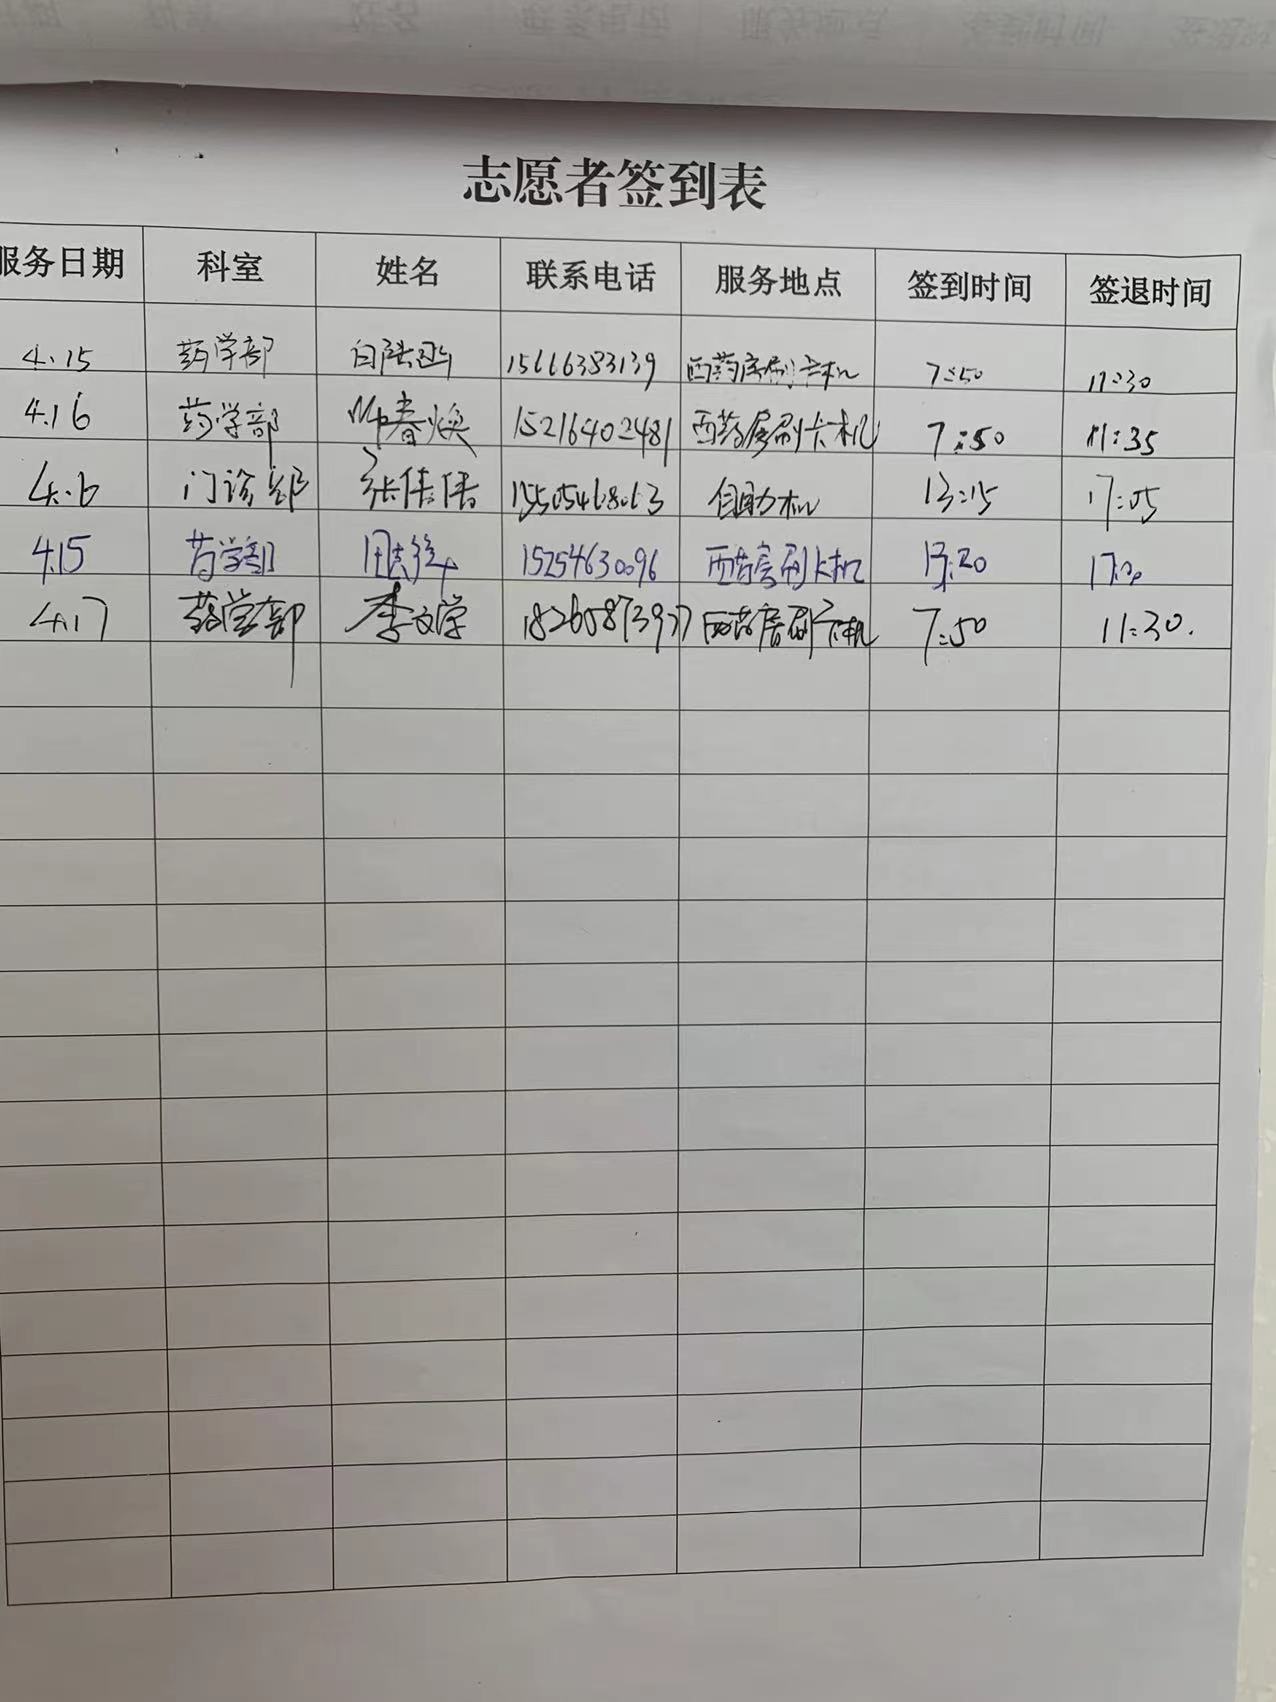 志愿者签到表
服务日期 科室 姓名 联系电话 服务地点 签到时间 签退时间
4.15 药学部 15666383139 西药房刷卡机 7:50 11:30
4.16 药学部 春焕 15216402481 西药房刷卡机 7:50 11:35
4.6 门诊部 张倩倩 自助机 13:15 17:05
4.15 药学部 15254630096 西药房刷卡机 13:20
4.17 药学部 李文学 18265873937 西药房刷卡机 7:50 11:30.